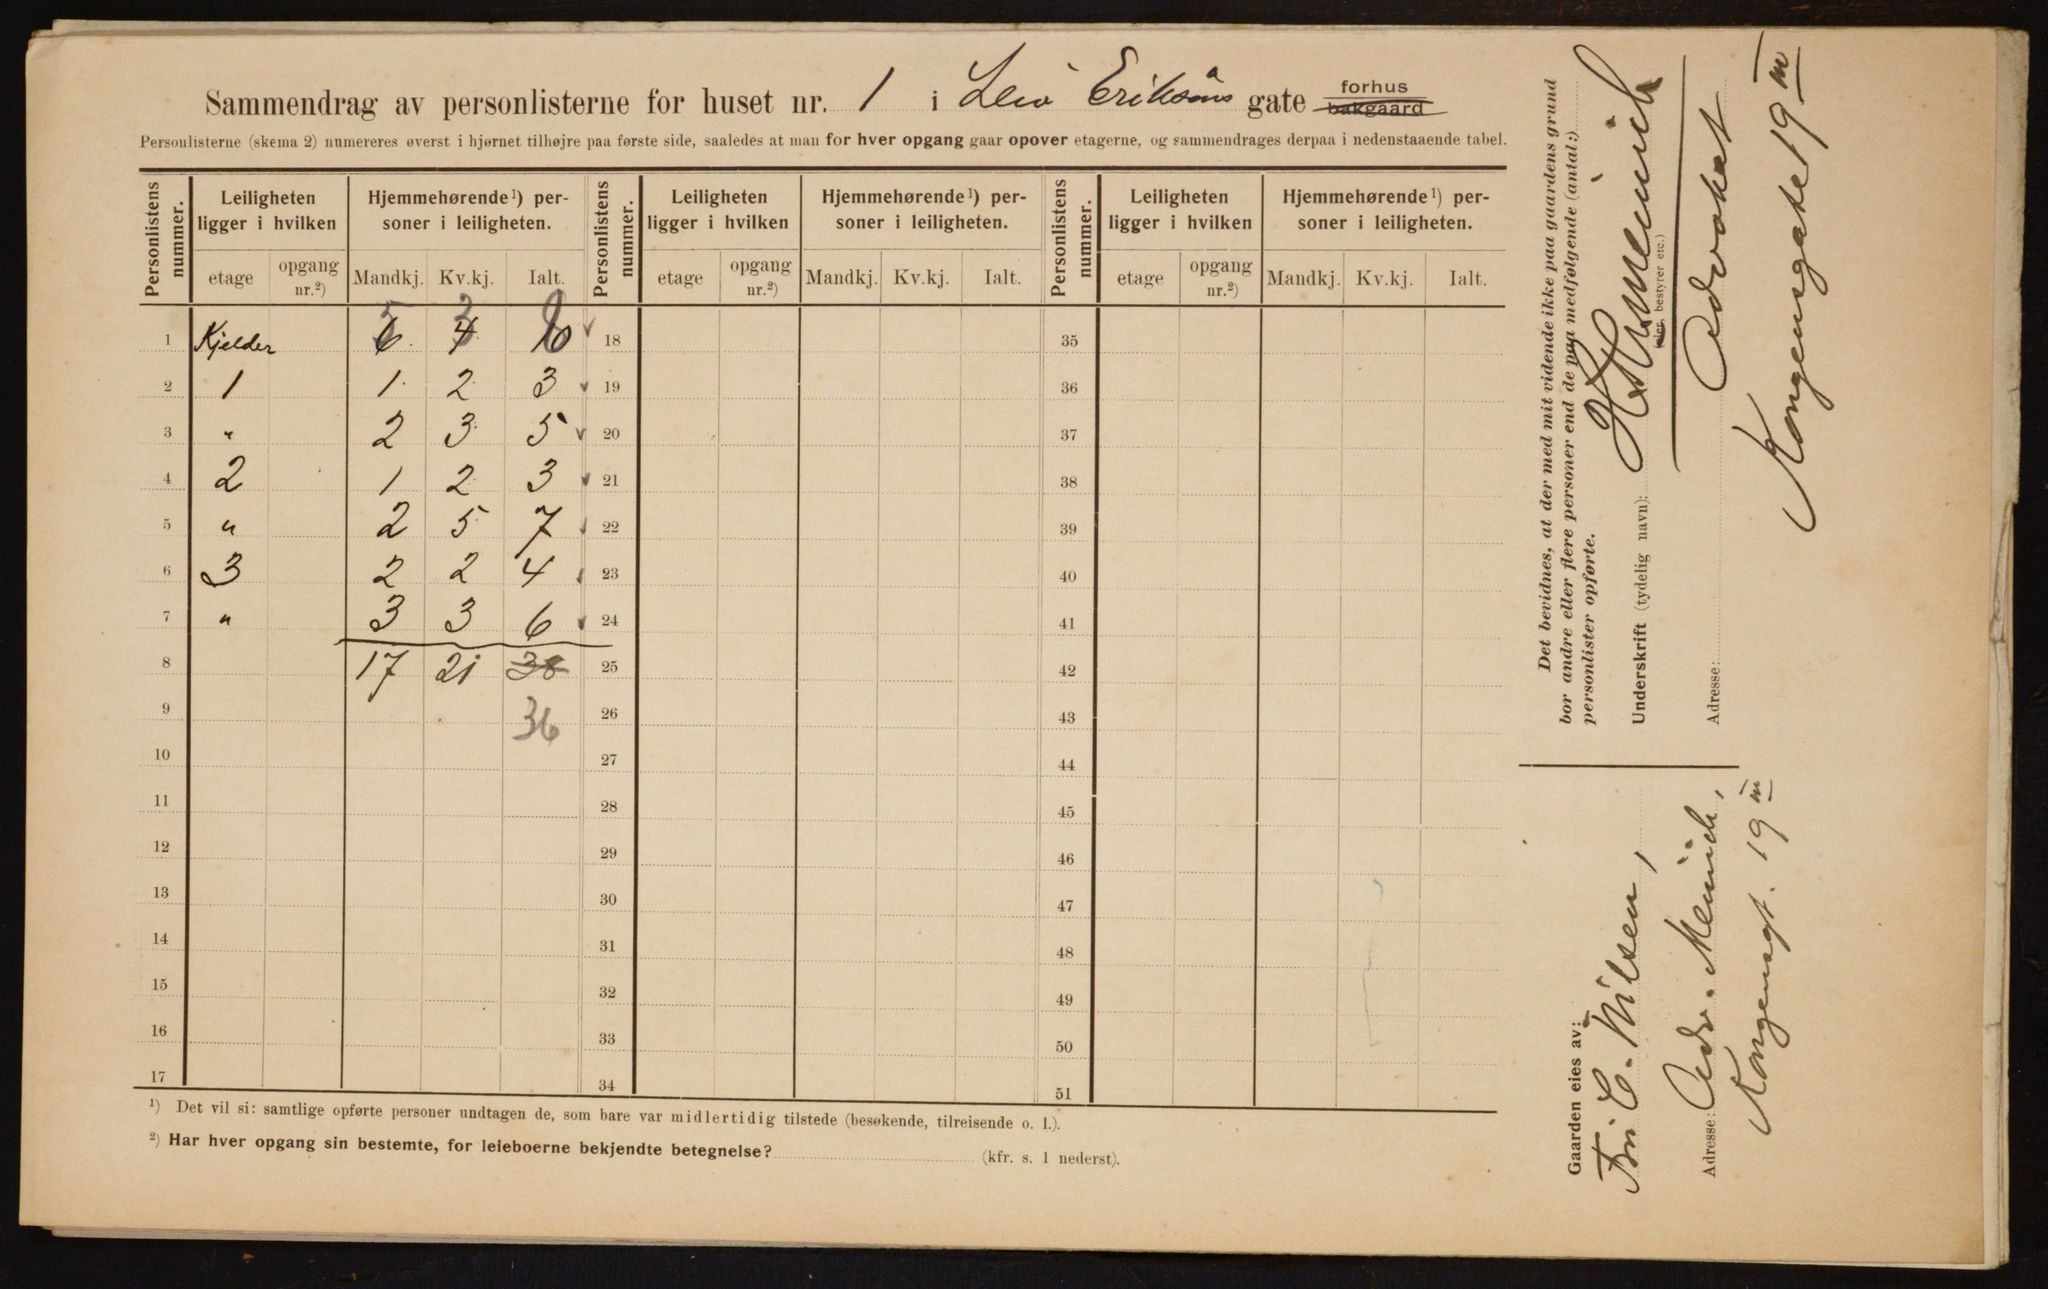 Sammendrag av personlisterne for huset nr. 1 i Leiv Eriksøns gate forhus bakgaard
Personlisterne (skema 2) numereres øverst i hjørnet tilhøjre paa første side, saaledes at man for hver opgang gaar opover etagerne, og sammendrages derpaa i nedenstaaende tabel.
Personlistens nummer. Leiligheten ligger i hvilken Hjemmehørende ¹) personer i leiligheten. Personlistens nummer. Leiligheten ligger i hvilken Hjemmehørende ¹) personer i leiligheten. Personlistens nummer. Leiligheten ligger i hvilken Hjemmehørende ¹) personer i leiligheten.
etage opgang nr.²) Mandkj. Kv.kj. Ialt. etage opgang nr.²) Mandkj. Kv.kj. Ialt. etage opgang nr.²) Mandkj. Kv.kj. Ialt.
1 Kjelder 6 4 10 18 35
2 1 1 2 3 19 36
3 " 2 3 5 20 37
4 2 1 2 3 21 38
5 " 2 5 7 22 39
6 3 2 2 4 23 40
7 " 3 3 6 24 41
8 17 21 38 25 42
9 36 26 43
10 27 44
11 28 45
12 29 46
13 30 47
14 31 48
15 32 49
16 33 50
17 34 51
¹) Det vil si: samtlige opførte personer undtagen de, som bare var midlertidig tilstede (besøkende, tilreisende o. l.).
²) Har hver opgang sin bestemte, for leieboerne bekjendte betegnelse? (kfr. s. 1 nederst).
Det bevidnes, at der med mit vidende ikke paa gaardens grund
bor andre eller flere personer end de paa medfølgende (antal:)
personlister opførte.
Underskrift (tydelig navn):
(eier, bestyrer etc.)
Advokat
Adresse: Kongensgate 19 III
Gaarden eies av:
C. Nilsen,
Adresse: Adv. Meinich,
Kongensgt. 19 III